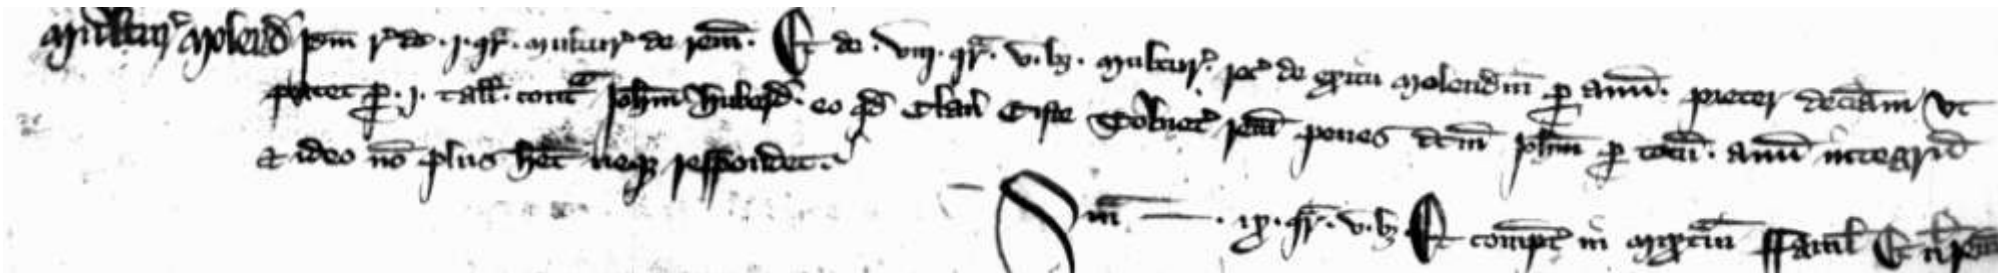 Multur' Molend' Idm r' de .j. qr. multur' de rem. Et de . viij. qr. v. bz. multur'. rec' de exitu molendin p annu. preter decimam vt
patet p .j. tall. cont Johm Huberd. eo qd Clauf Ciste remu penes dcm Johm p totu. annu integru
et ideo no plus het neqz respondet.
Sm . ix. qr. v. bz Et comput' in mixtur ffamul Et